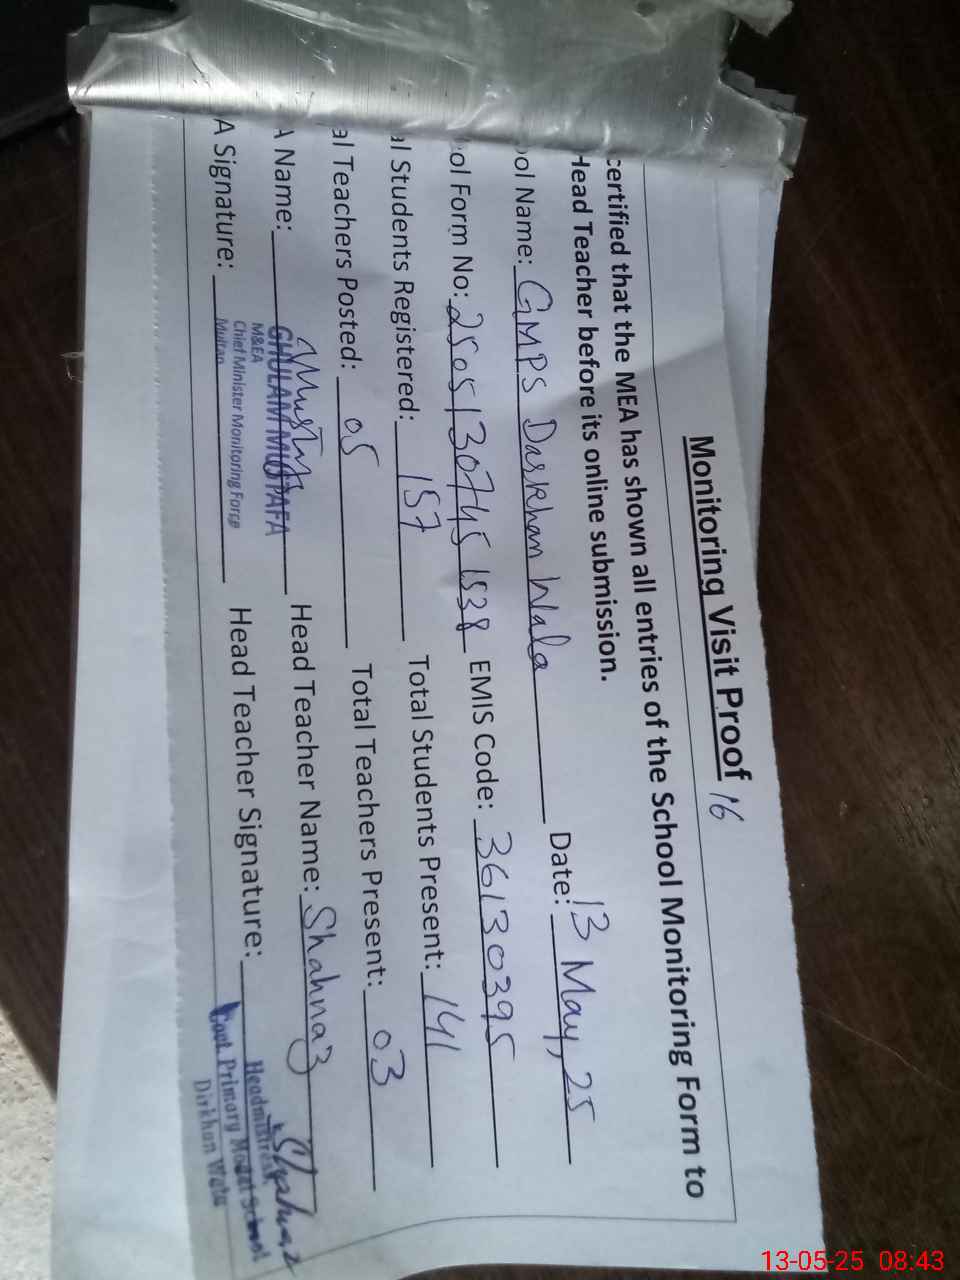 Monitoring Visit Proof 16
certified that the MEA has shown all entries of the School Monitoring Form to
Head Teacher before its online submission.
ol Name: GMPS Darkhan Wala Date: 13 May, 25
ol Form No: 2505130745 1538 EMIS Code: 36130395
al Students Registered: 157 Total Students Present: 141
al Teachers Posted: 05 Total Teachers Present: 03
A Name: GHULAM MUSTAFA Head Teacher Name: Shahnaz
M&EA
Chief Minister Monitoring Force
Multan
A Signature: Head Teacher Signature:
Headmistress
Govt. Primary Model School
Dirkhan Wala
13-05-25 08:43